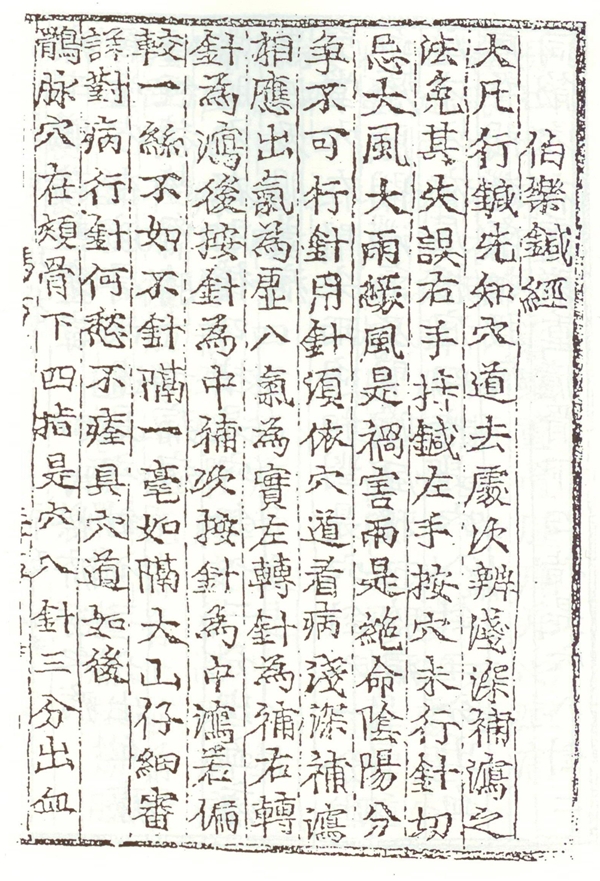 伯樂鍼經
大凡行鍼先知穴道去處次辨淺深補瀉之
法免其失誤右手持鍼左手按穴未行針切
忌大風大雨緣風是禍害雨是絕命陰陽分
争不可行針用針須依穴道看病淺深補瀉
相應出氣為虛入氣為實左轉針為補右轉
針為瀉後按針為中補次按針為中瀉若偏
較一絲不如不針隔一毫如隔大山仔細審
詳對病行針何愁不痊具穴道如後
鶻脉穴在頰骨下四指是穴入針三分出血